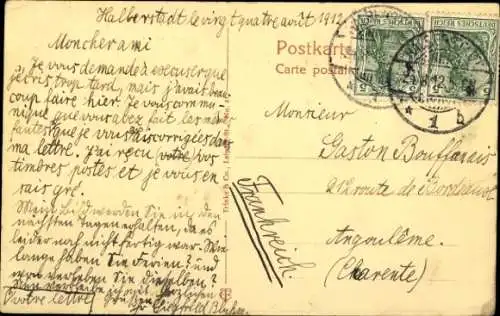 Halberstadt le vingt quatre août 1912
Mon cher ami
Je vous demande à excuser que
j'écris trop tard, mais j'avait beau-
coup faire hier. Je vous commu-
nique que vous abez fait les mêmes
fautes que je vous ai corrigées dans
ma lettre. J'ai reçu (votre) vos
timbres postes et je vous en
sais gré.
Mein Bild werden Sie in den
nächsten Tagen erhalten, da es
leider noch nicht fertig war. Wie
lange haben Sie Ferien? und
wo verleben Sie dieselben?
votre lettre) Grüßen Ihr Siegfried
Postkarte
Carte postale
DEUTSCHES REICH
DEUTSCHES REICH
Monsieur
Gaston Bouffanais
212 route de Bordeaux
Angoulême
(Charente)
Frankreich